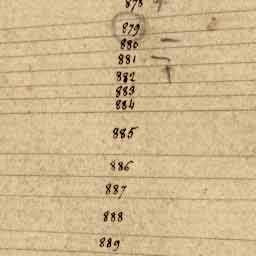 878
879
880
881
882
883
884
885
886
887
888
889